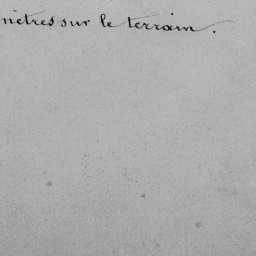 mètres sur le terrain.